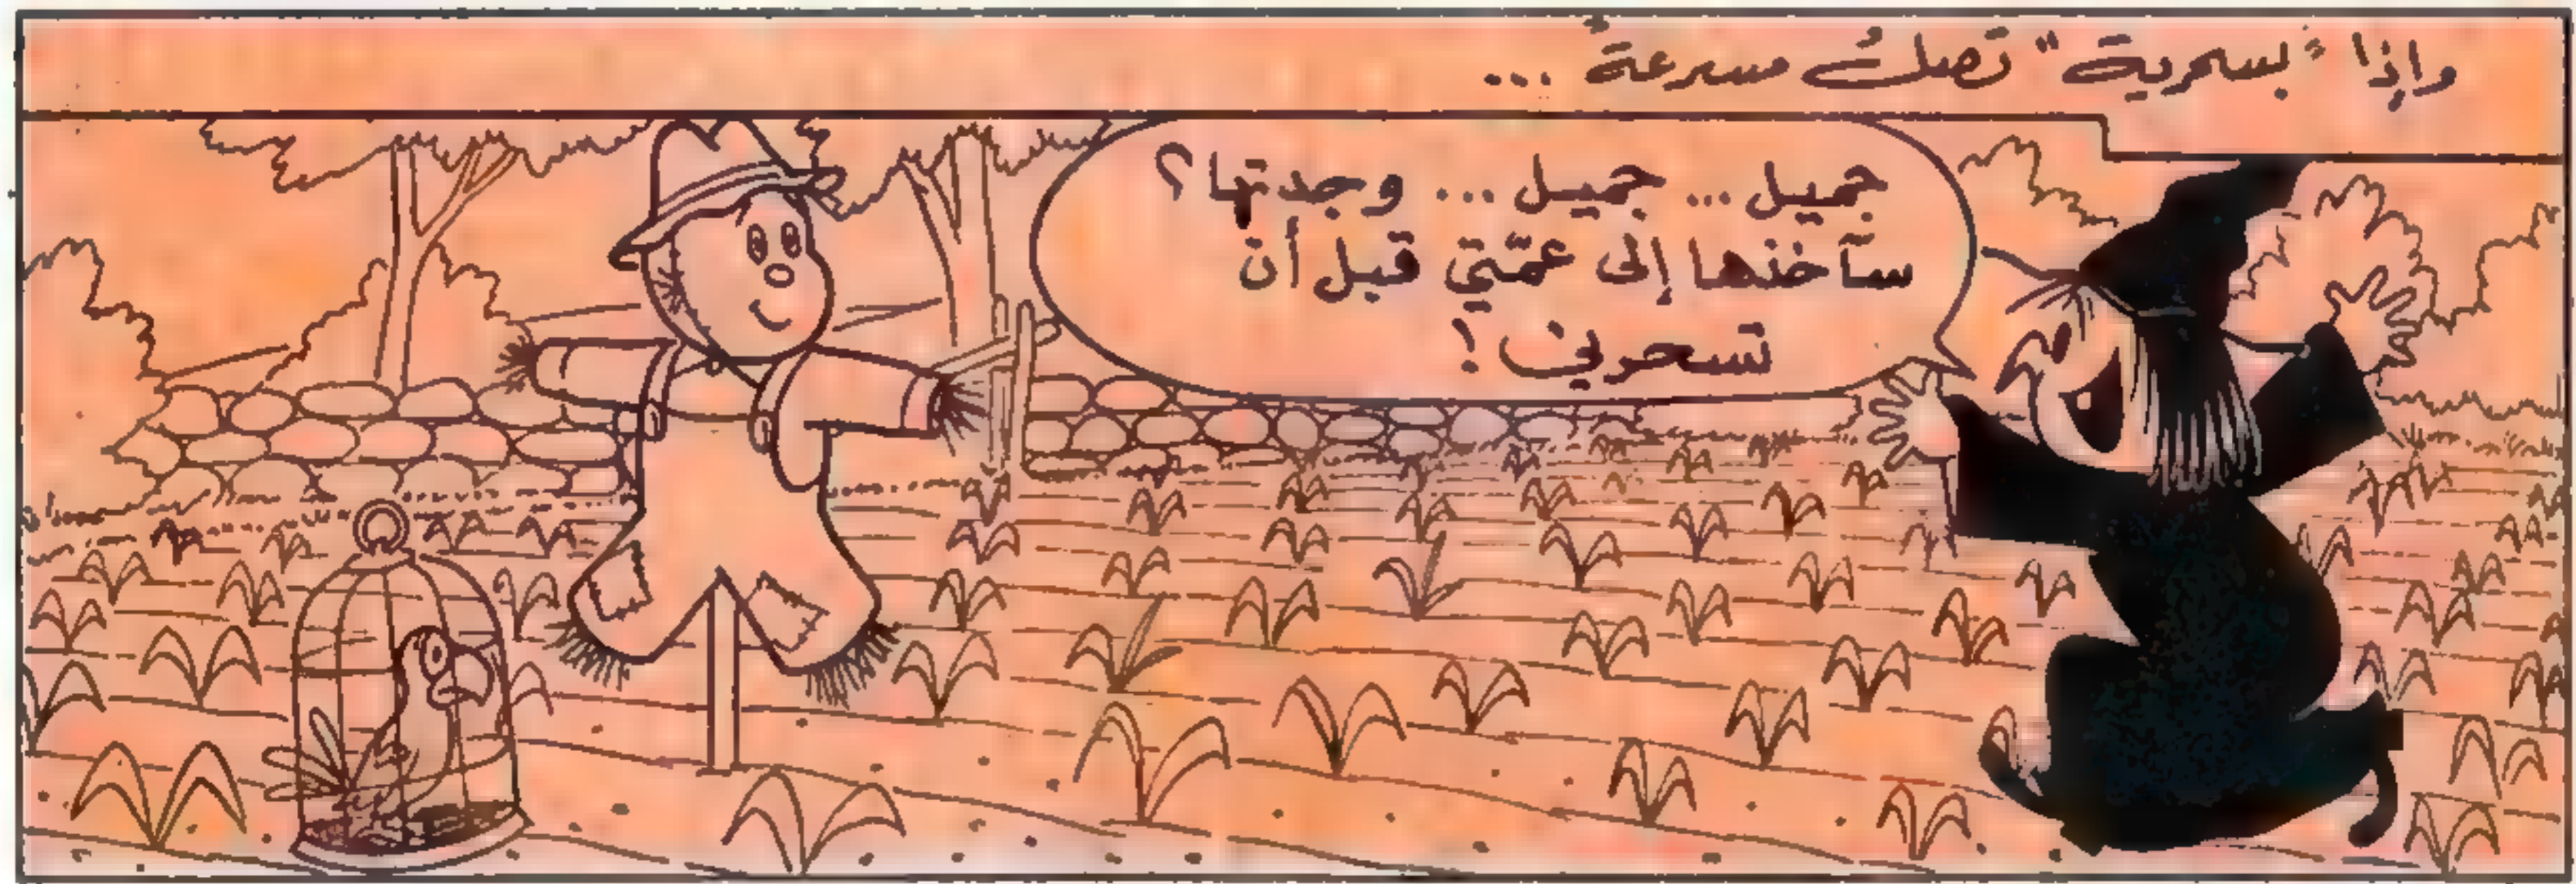 وإذا "بسحرية" تصلُ مسرعةً ...
جميل ... جميل ... وجدتها؟
سآخذها إلى عمّتي قبل أن
تسحرني!